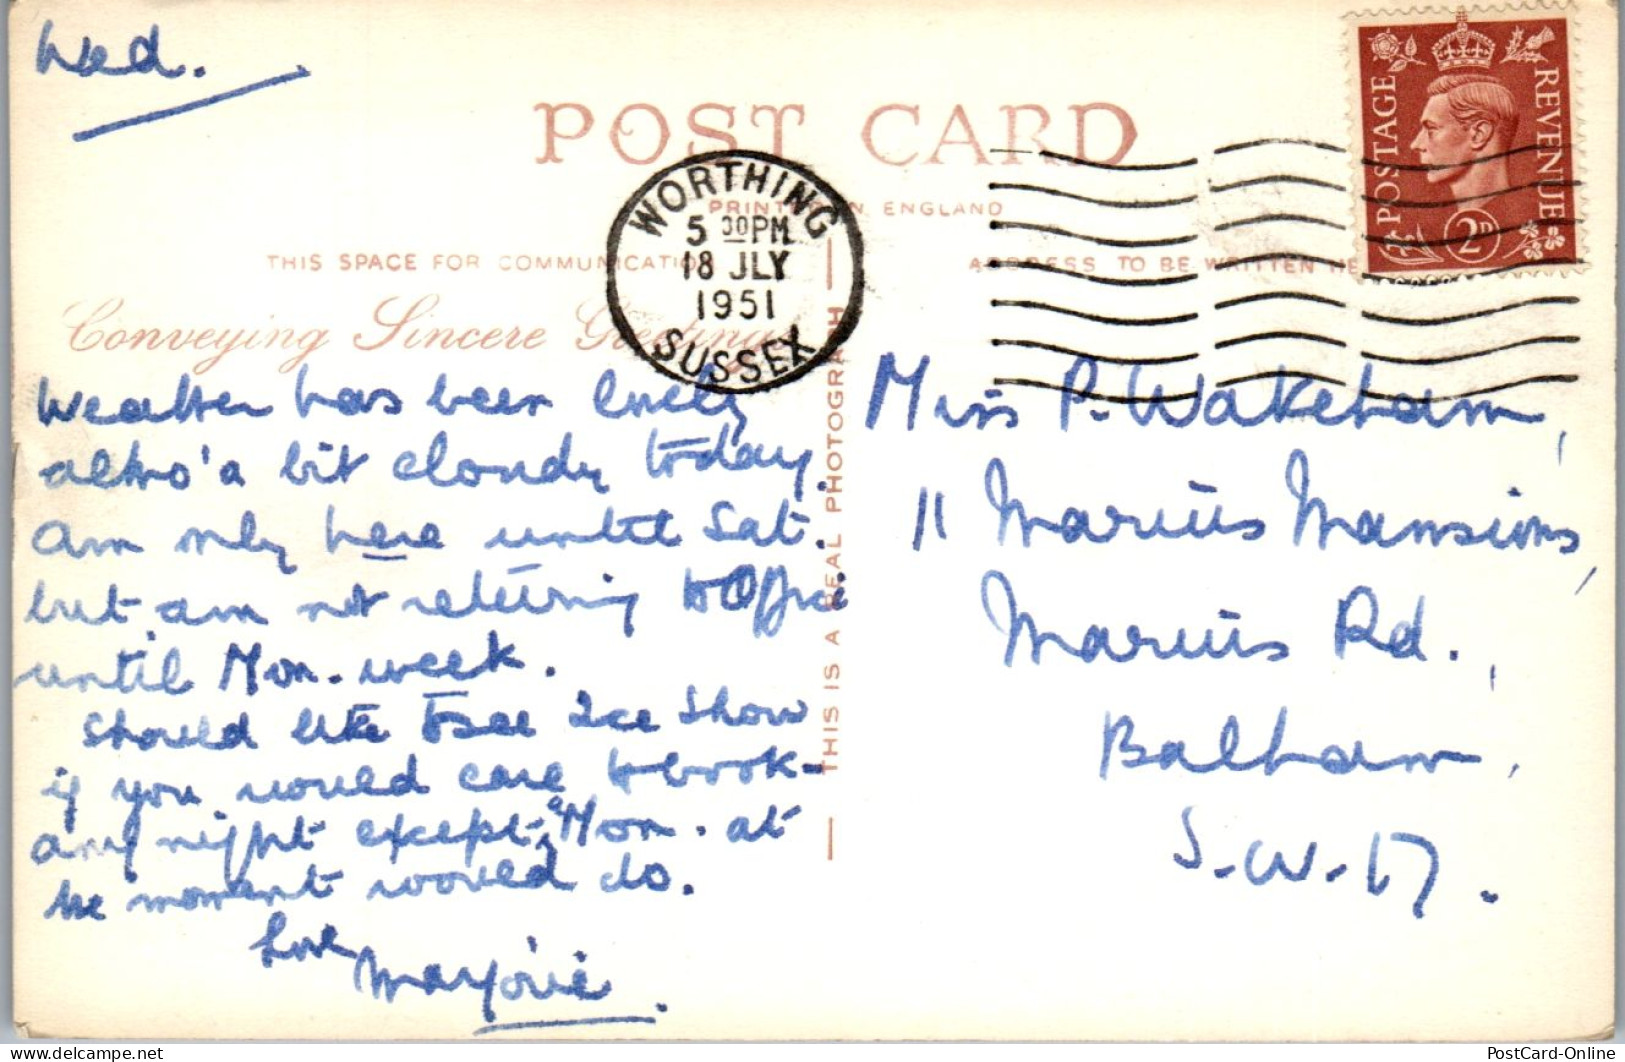 Wed.
POST CARD
PRINTED IN ENGLAND
THIS SPACE FOR COMMUNICATION
ADDRESS TO BE WRITTEN HE
Conveying Sincere Greetings
WORTHING
5 30 PM
18 JLY
1951
SUSSEX
POSTAGE
REVENUE
2D
THIS IS A REAL PHOTOGRAPH
Weather has been lovely
altho' a bit cloudy today.
Am only here until Sat.
but am not returning to Office
until Mon. week.
Should like to see Ice Show
if you would care to book -
any night except Mon. at
the moment would do.
Love
Marjorie.
Miss P. Wakeham,
11 Marius Mansions,
Marius Rd.,
Balham,
S.W.17.
PostCard-Online